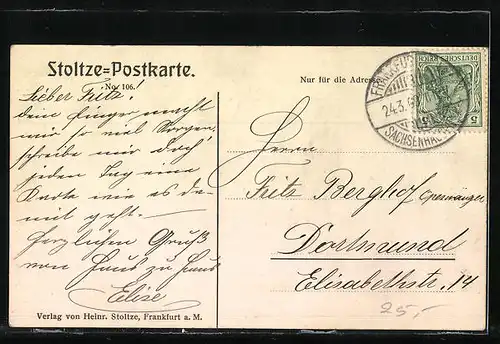 Stoltze=Postkarte.
No. 106.
Nur für die Adresse
Lieber Fritz!
dein Finger macht
mir so viel Sorgen,
schreibe mir doch
jeden Tag eine
Karte wie es da-
mit geht.
Herzlichen Gruß
von Haus zu Haus
Elise
Verlag von Heinr. Stoltze, Frankfurt a. M.
FRANKFU
24.3.
SACHSENHA
DEUTSCHES REICH
5
Herrn
Fritz Berghof Opernsänger
Dortmund
Elisabethstr. 14
25,-